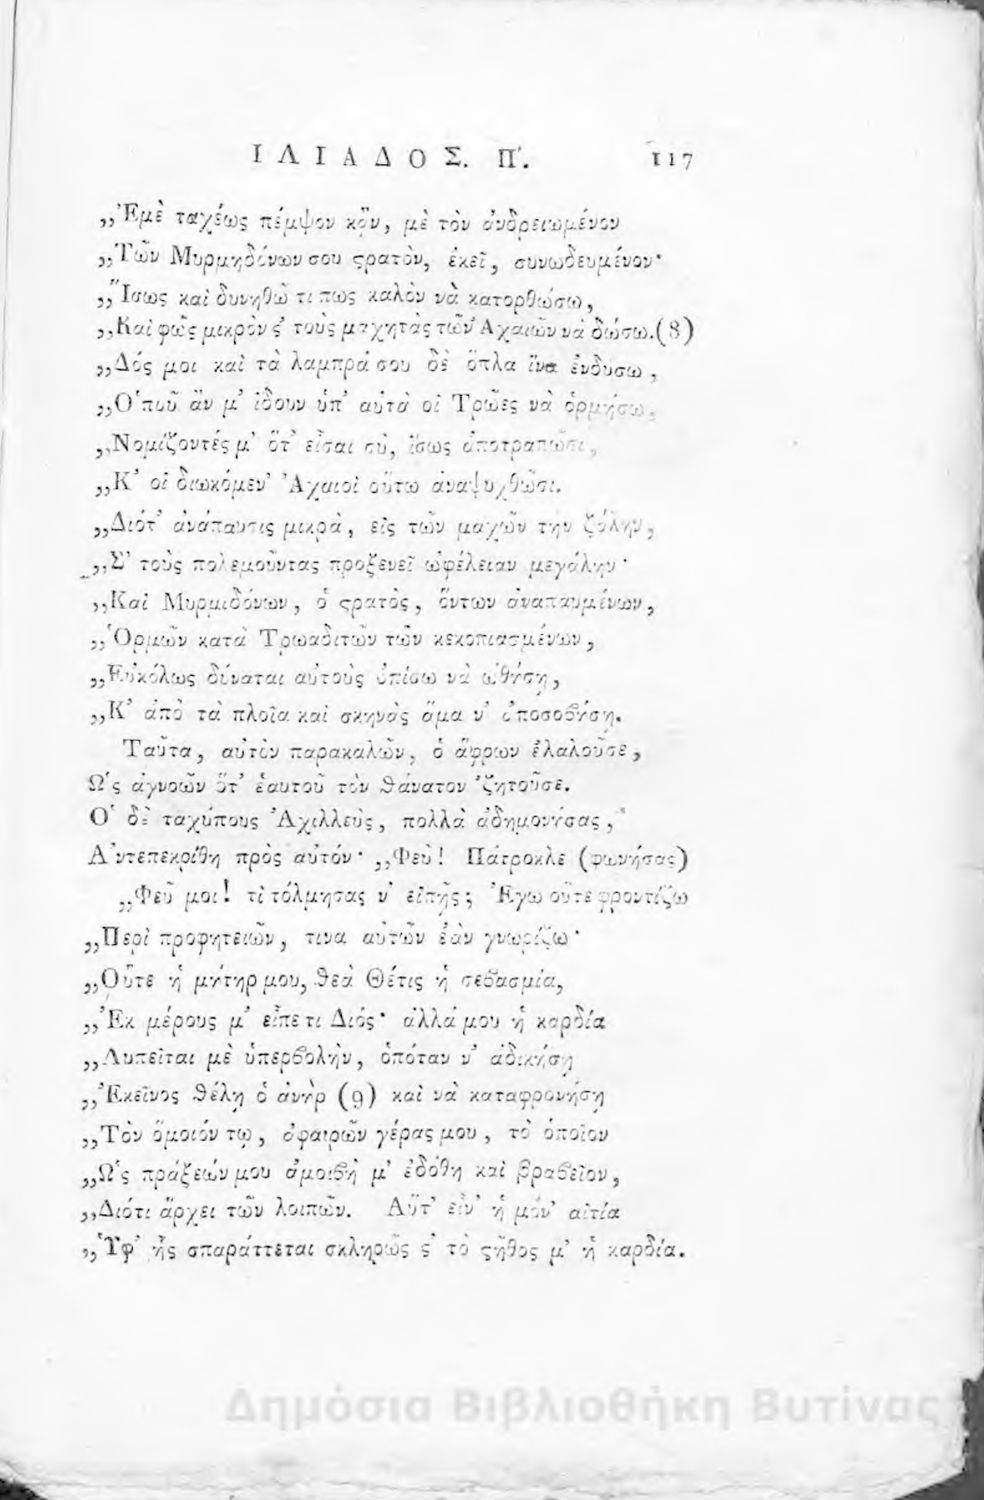 ΙΛΙΑΔΟΣ. Π'. 117
„Ἐμὲ ταχέως πέμψον κᾂν, μὲ τὸν ἀνδρειωμένον
„Τῶν Μυρμηδόνων σου ϛρατὸν, ἐκεῖ, συνωδευμένον·
„Ἴσως καὶ δυνηθῶ τι πως καλὸν νὰ κατορθώσω,
„Καὶ φῶς μικρὸν ϛ' τοὺς μαχητὰς τῶν Ἀχαιῶν νὰ δώσω.(8)
„Δός μοι καὶ τὰ λαμπρά σου δὲ ὅπλα ἵνα ἐνδυσω,
„Ὁποῦ ἂν μ' ἰδουν ὑπ' αὐτὰ οἱ Τρῶες νὰ ὁρμήσω,
„Νομίζοντές μ' ὅτ' εἶσαι σὺ, ἴσως ἀποτραπῶσι,
„Κ' οἱ διωκόμεν' Ἀχαιοὶ οὕτω ἀναψυχθῶσι.
„Διότ' ἀνάπαυσις μικρὰ, εἰς τῶν μαχῶν τὴν ζάλην,
„Σ' τοὺς πολεμοῦντας προξενεῖ ὠφέλειαν μεγάλην·
„Καὶ Μυρμιδόνων, ὁ ϛρατὸς, ὄντων ἀναπαυμένων,
„Ὁρμῶν κατὰ Τρωαδιτῶν τῶν κεκοπιασμένων,
„Εὐκόλως δύναται αὐτοὺς ὀπίσω νὰ ὠθήσῃ,
„Κ' ἀπὸ τὰ πλοῖα καὶ σκηνὰς ἅμα ν' ὀποσοβήσῃ.
Ταῦτα, αὐτὸν παρακαλῶν, ὁ ἄφρων ἐλαλοῦσε,
Ὡς ἀγνοῶν ὅτ' ἑαυτοῦ τὸν θάνατον 'ζητοῦσε.
Ὁ δὲ ταχύπους Ἀχιλλεὺς, πολλὰ ἀδημονήσας,
Ἀντεπεκρίθη πρὸς αὐτόν· „Φεῦ! Πάτροκλε (φωνήσας)
„Φεῦ μοι! τὶ τόλμησας ν' εἰπῇς; Ἐγω οὔτε φροντίζω
„Περὶ προφητειῶν, τινα αὐτῶν ἐὰν γνωρίζω·
„Οὔτε ἡ μήτηρ μου, θεὰ Θέτις ἡ σεβασμία,
„Ἐκ μέρους μ' εἶπε τι Διός· ἀλλά μου ἡ καρδία
„Λυπεῖται μὲ ὑπερβολὴν, ὁπόταν ν' ἀδικήσῃ
„Ἐκεῖνος θέλῃ ὁ ἀνὴρ (9) καὶ νὰ καταφρονήσῃ
„Τὸν ὅμοιόν τῳ, ἀφαιρῶν γέρας μου, τὸ ὁποῖον
„Ὡς πράξεών μου ἀμοιβὴ μ' ἐδόθη καὶ βραβεῖον,
„Διότι ἄρχει τῶν λοιπῶν. Αὕτ' εἶν' ἡ μόν' αἰτία
„Ὑφ' ἧς σπαράττεται σκληρῶς ϛ' τὸ ϛῆθος μ' ἡ καρδία.
Δημόσια Βιβλιοθήκη Βυτίνας